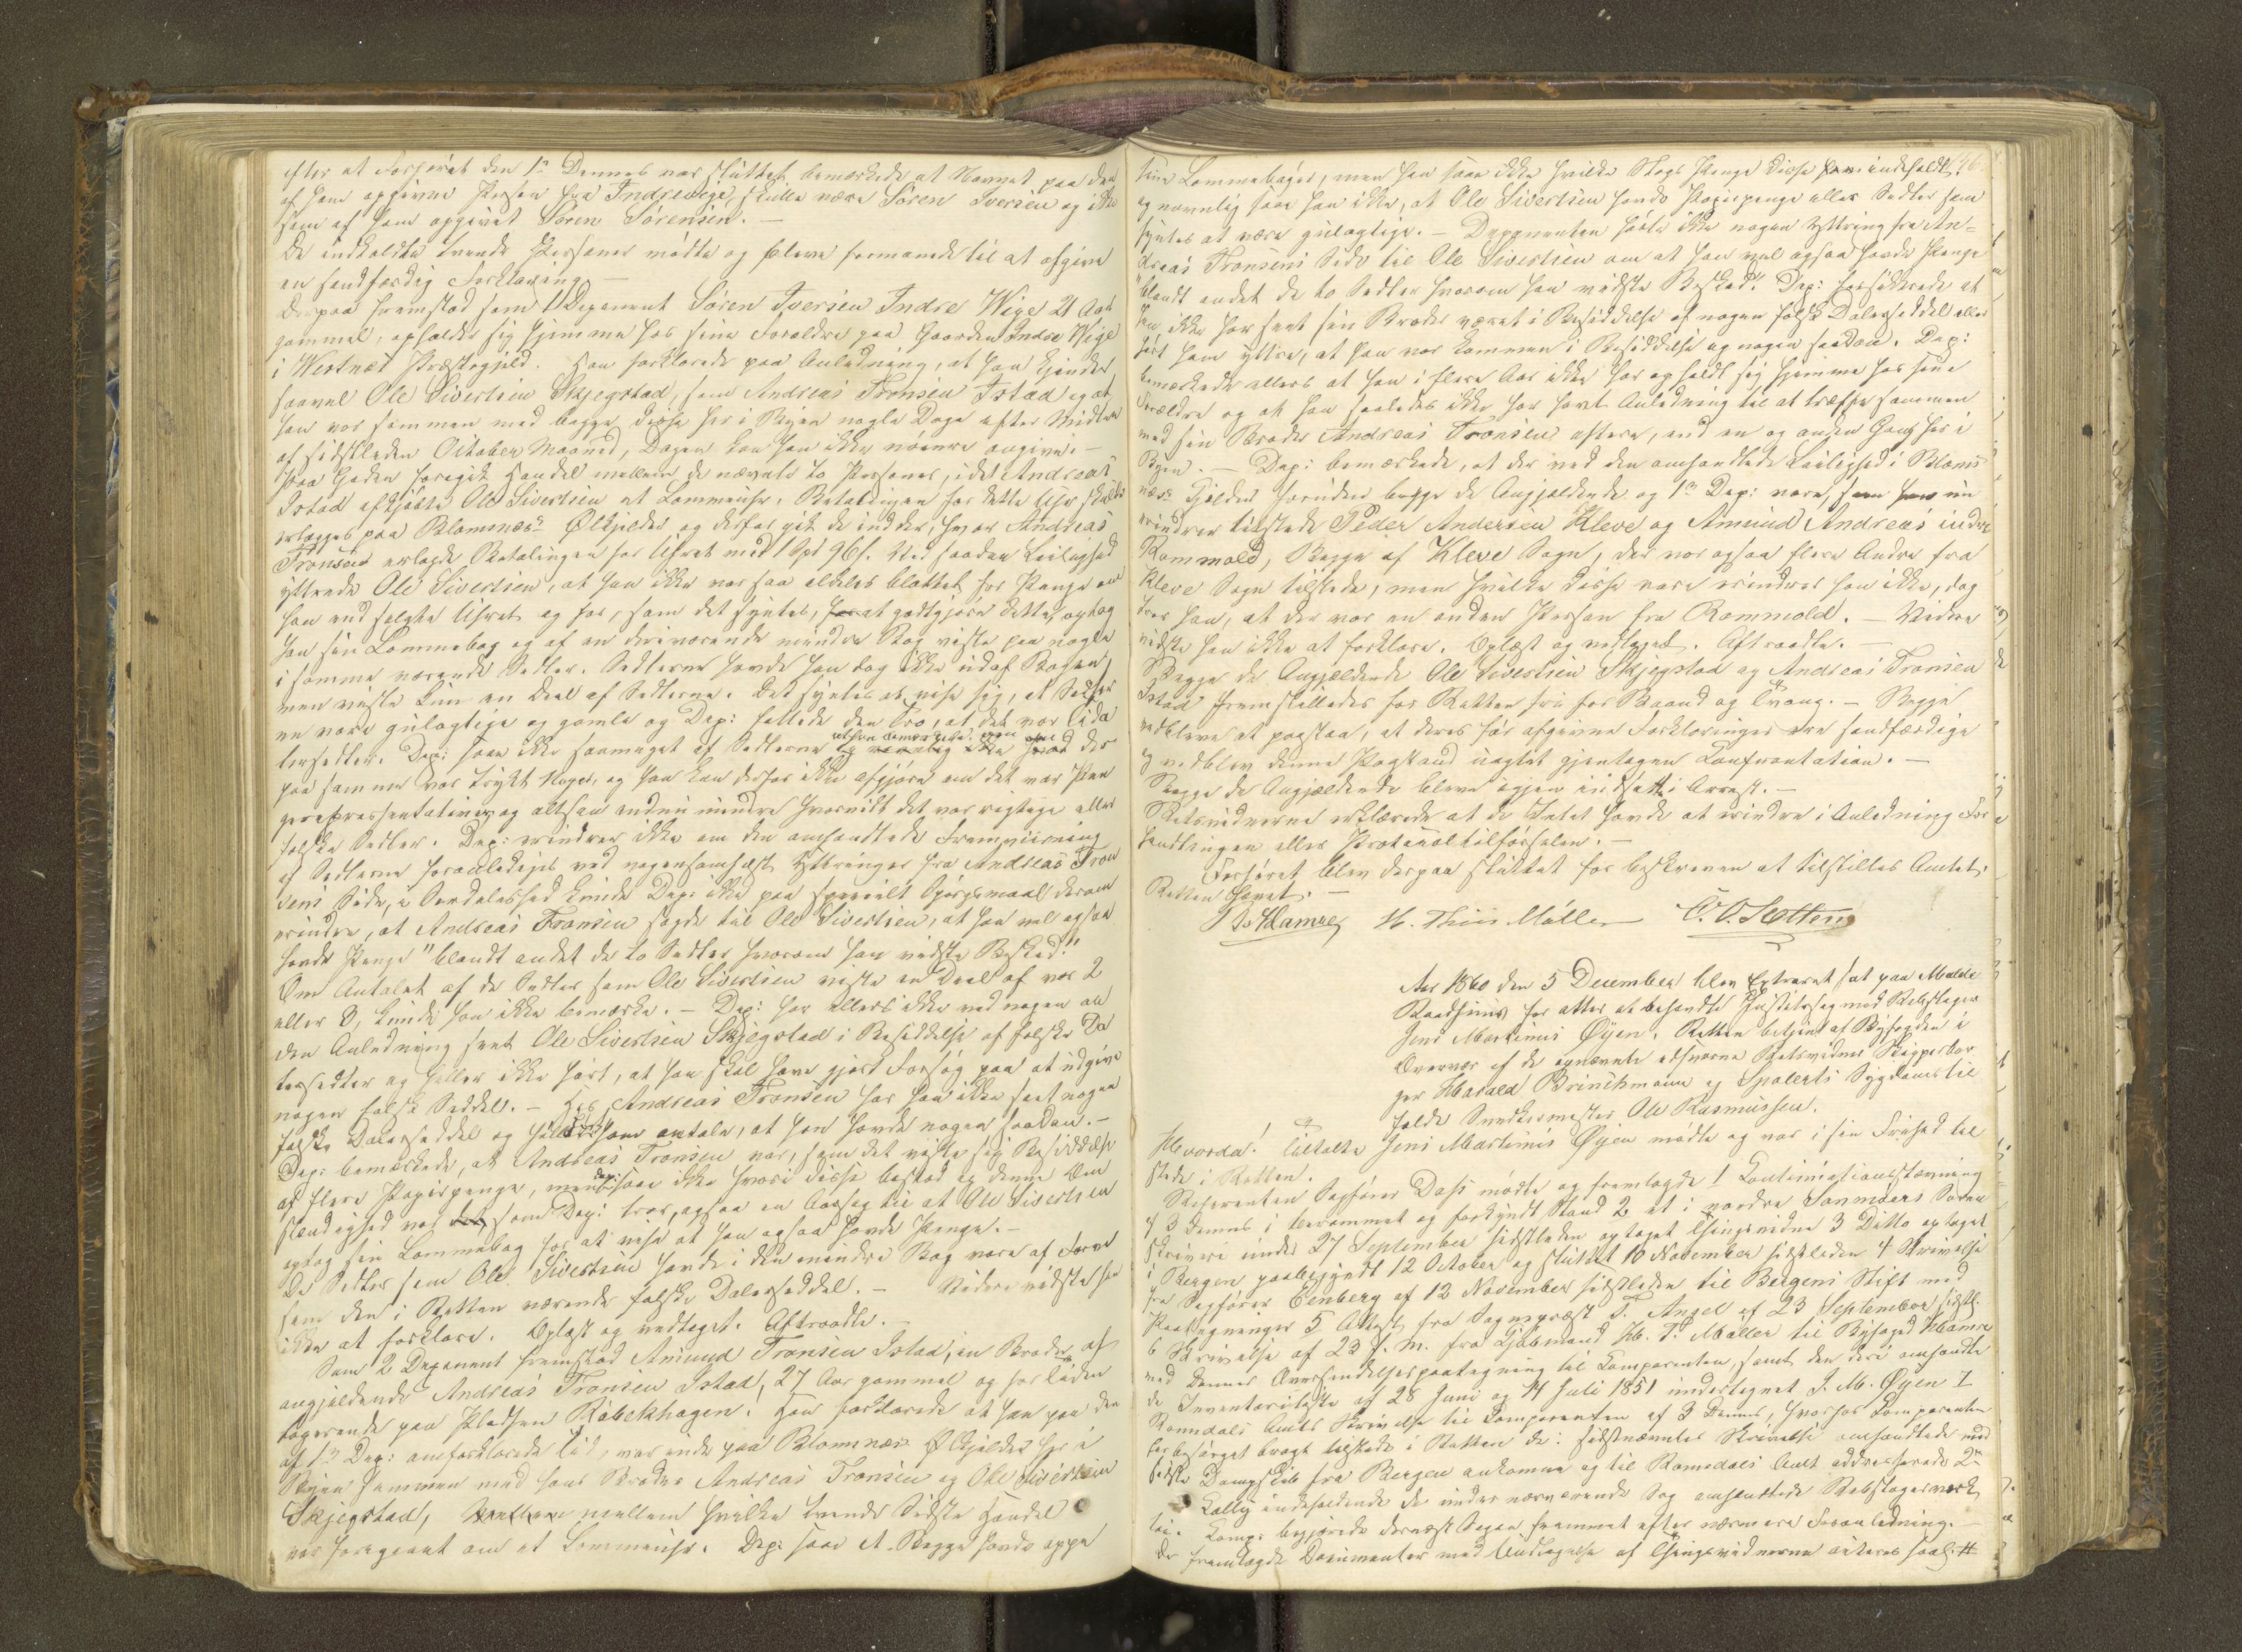 efter at Forhøret den 1ste Dennes var sluttet bemærkede at Navnet paa den
af ham opgivne Person fra Indrewige, skulle være Søren Iversen og ikke
som af ham opgivet Søren Sørensen. —
De indkaldte tvende Personer mødte og bleve formanede til at afgive
en sandfærdig Forklaring. —
Derpaa fremstod som 1 Deponent Søren Iversen Indre Wige 21 Aar
gammel, opholder sig hjemme hos sine Forældre paa Gaarden Indre Wige
i Westnæs Præstegjeld. Han forklarede paa Anledning, at han kjender
saavel Ole Sivertsen Skjegstad, som Andreas Tronsen Istad og at
han var sammen med begge disse her i Byen nogle Dage efter Midten
af sidstleden October Maaned, Dagen kan han ikke nøiere angive. —
Paa Gaden foregik Handel mellem de nævnte to Personer, idet Andreas
Istad afkjøbte Ole Sivertsen et Lommeuhr. Betalingen for dette Uhr skulde
erlægges paa Blomnæs Ølkjelder og derfor gik de ind der, hvor Andreas
Tronsen erlagde Betalingen for Uhret med 1 Spd 96 s. Ved saadan Leilighed
yttrede Ole Sivertsen, at han ikke var saa aldeles blottet for Penge om
han end solgte Uhret og for, som det syntes, at godtgjøre dette, optog
han sin Lommebog og af en deriværende mindre Bog viste paa nogle
i samme værende Sedler. Sedlerne havde han dog ikke ud af Bogen,
men viste kun en Deel af Sedlerne. Det syntes at vise sig, at Sedler
ne vare gulagtige og gamle og Dep: fattede den Tro, at det var Dale
lersedler. Dep: saae ikke saameget af Sedlerne at han bemærkede der
paa samme var trykt Noget, og han kan derfor ikke afgjøre om det var Pen
gerepræsentativer og altsaa endnu mindre hvorvidt det var rigtige eller
falske Sedler. Dep: erindrer ikke om den omhandlede Fremviisning
af Sedlerne foranledigedes ved nogensomhelst Yttringer fra Andreas Tron
sens Side, i Særdeleshed kunde Dep: ikke paa specielt Spørgsmaal derom
erindre, at Andreas Tronsen sagde til Ole Sivertsen, at han vel ogsaa
havde Penge "blandt andet de to Sedler hvorom han vidste Besked".
Om Antalet af de Sedler som Ole Sivertsen viste en Deel af var 2
eller 8, kunde han ikke bemærke. — Dep: har ellers ikke ved nogen an
den Anledning seet Ole Sivertsen Skjegstad i Besiddelse af falske Da
lersedler og heller ikke hørt, at han skal have gjort Forsøg paa at udgive
nogen falsk Seddel. — Hos Andreas Tronsen har han ikke seet nogen
falsk Dalerseddel og heller ikke hørt ham omtale, at han havde nogen saadan. —
Dep: bemærkede, at Andreas Tronsen var, som det viste sig Besidder
af flere Papirpenge, men Dep: saae ikke hvori disse bestod og denne Om
stændighed var som Dep: troer, ogsaa en Aarsag til at Ole Sivertsen
optog sin Lommebog for at vise at han ogsaa havde Penge. —
De Sedler som Ole Sivertsen havde i den mindre Bog vare af Form
som den i Retten værende falske Dalerseddel. — Videre vidste han
ikke at forklare. Oplæst og vedtaget. Aftraadte. —
Som 2 Deponent fremstod Amund Tronsen Istad, en Broder af
angjeldende Andreas Tronsen Istad, 27 Aar gammel og for Tiden
logerende paa Pladsen Røbekhagen. Han forklarede at han paa den
af 1ste Dep: omforklarede Tid, var inde paa Blomnæs Ølkjelder her i
Byen sammen med hans Broder Andreas Tronsen og Ole Sivertsen
Skjegstad, mellem hvilke tvende Sidste Handel
var foregaaet om et Lommeuhr. Dep: saae at Begge havde oppe
sine Lommebøger, men han saae ikke hvilke Slags Penge disse indeholdt,
og navnlig saae han ikke, at Ole Sivertsen havde Papirpenge eller Sedler som
syntes at være gulagtige. — Deponenten hørte ikke nogen Yttring fra An=
dreas Tronsens Side til Ole Sivertsen om at han vel ogsaa havde Penge
"blandt andet de to Sedler hvorom han vidste Besked". Dep: forsikkrede at
han ikke har seet sin Broder været i Besiddelse af nogen falsk Dalerseddel eller
hørt ham yttre, at han var kommen i Besiddelse af nogen saadan. Dep:
bemærkede ellers at han i flere Aar ikke har opholdt sig hjemme hos sine
Forældre og at han saaledes ikke har havt Anledning til at træffe sammen
med sin Broder Andreas Tronsen oftere, end en og anden Gang her i
Byen. — Dep: bemærkede, at der ved den omhandlede Leilighed i Blom
næs Kjelder foruden begge de Angjeldende og 1ste Dep: vare,
erindrer tilstede Peder Andersen Kleve og Amund Andreas indre
Rommold, Begge af Kleve Sogn, der var ogsaa flere Andre fra
Kleve Sogn tilstede, men hvilke disse vare erindrer han ikke, dog
troer han, at der var en anden Person fra Rommold. — Videre
vidste han ikke at forklare. Oplæst og vedtaget. Aftraadte. —
Begge de Angjeldende Ole Sivertsen Skjegstad og Andreas Tronsen
Istad fremstilledes for Retten fri for Baand og Tvang. — Begge
vedbleve at paastaa, at deres før afgivne Forklaringer ere sandfærdige
og vedblev denne Paastand uagtet gjentagen Confrontation. —
Begge de Angjeldende bleve igjen indsatte i Arrest. —
Retsvidnerne erklærede at de Intet havde at erindre i Anledning For
handlingen eller Protocoltilførselen. —
Forhøret blev derpaa sluttet for beskreven at tilstilles Amtet.
Retten hævet. —
Hamre H. Thiis Møller O. O. Sætten
Aar 1860 den 5 December blev Extraret sat paa Molde
Raadhuus for atter at behandle Justitssag mod Rebslager
Jens Martinus Øyen. Retten betjent af Byfogden i
Overvær af de opnævnte edsvorne Retsvidner Skipperbor
ger Harald Brinchmann og Spolerts Sygdoms til
fælde Snedkermester Ole Rasmussen.
Hvorda! Tiltalte Jens Martinus Øyen mødte og var i sin Frihed til
stede i Retten.
Referenten Sagfører Dahl mødte og fremlagde 1 Continuationsstævning
af 3 Dennes i berammet og forkyndt Stand 2 et i nordre Søndmøers Soren
skriveri under 27 September sidstleden optaget Thingsvidne 3 Ditto optaget
i Bergen paabegyndt 12 October og sluttet 10 November sidstleden 4 Skrivelse
fra Sagfører Eenberg af 12 November sidstleden til Bergens Stift med
Paategninger 5 Attest fra Sognepræst F. Angel af 23 September sidstl.
6 Skrivelse af 23 f. M. fra Kjøbmand H. T. Møller til Byfoged Hamre
med dennes Oversendelsespaategning til Comparenten, samt den deri omhandle
de Inventarieliste af 28 Juni og 14 Juli 1851 undertegnet J. M. Øyen 7
Romsdals Amts Skrivelse til Comparenten af 3 Dennes, hvorhos Comparenten
har besørget bragt tilstede i Retten de i sidstnævnte Skrivelse omhandlede med
sidste Dampskib fra Bergen ankomne og til Romsdals Amt addresserede 2de
Colly indeholdende de under nærværende Sag omhandlede Rebslagerværk
tøi. Comp: begjærede dernæst Sagen fremmet efter nærmere Foranledning. —
De fremlagde Documenter med Undtagelse af Thingsvidnerne acteres saal. #